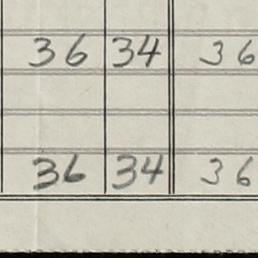 36 34 36
36 34 36